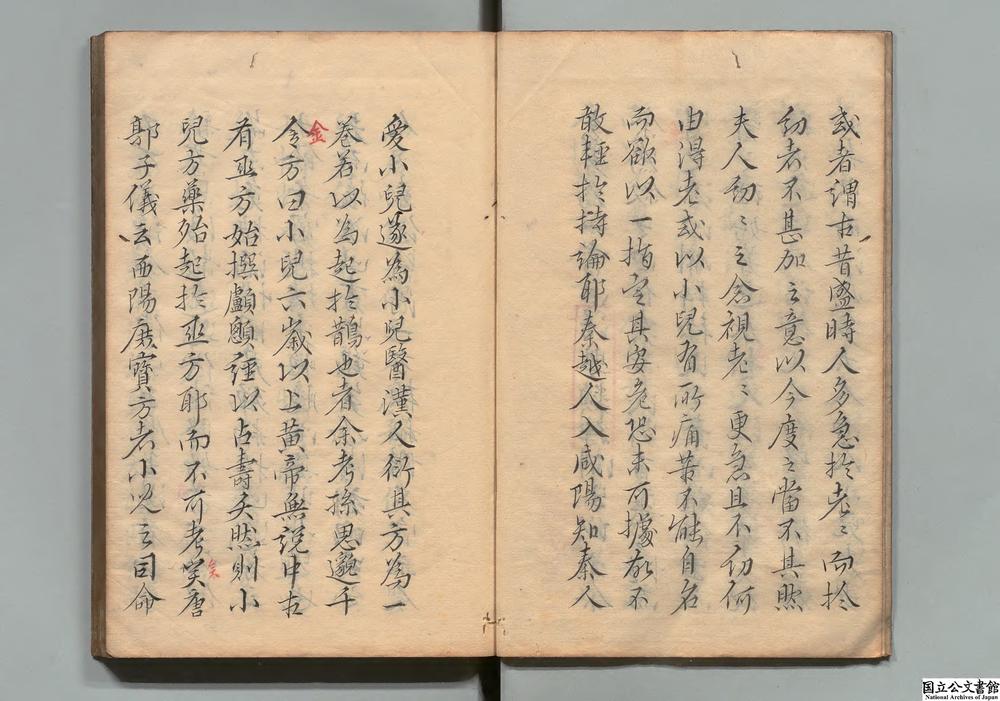 或者謂古昔盛時人多急於老〻而於
幼者不甚加之意以今度之當不其然
夫人幼〻之念視老〻更急且不幼何
由淂老或以小兒有所痛苦不能自名
而欲以一指定其安危恐未可據故不
敢輕於持論耶秦越人入咸陽知秦人
愛小兒遂為小兒醫漢人衍其方為一
卷若以為起於鵲也者余考孫思邈千
令方曰小兒六歲以上黃帝無說中古
金
有巫方始撰顱顖經以占壽夭然則小
兒方藥殆起於巫方耶而不可考矣唐
矣
郭子儀云西陽廣寶方者小兒之司命
国立公文書館
National Archives of Japan